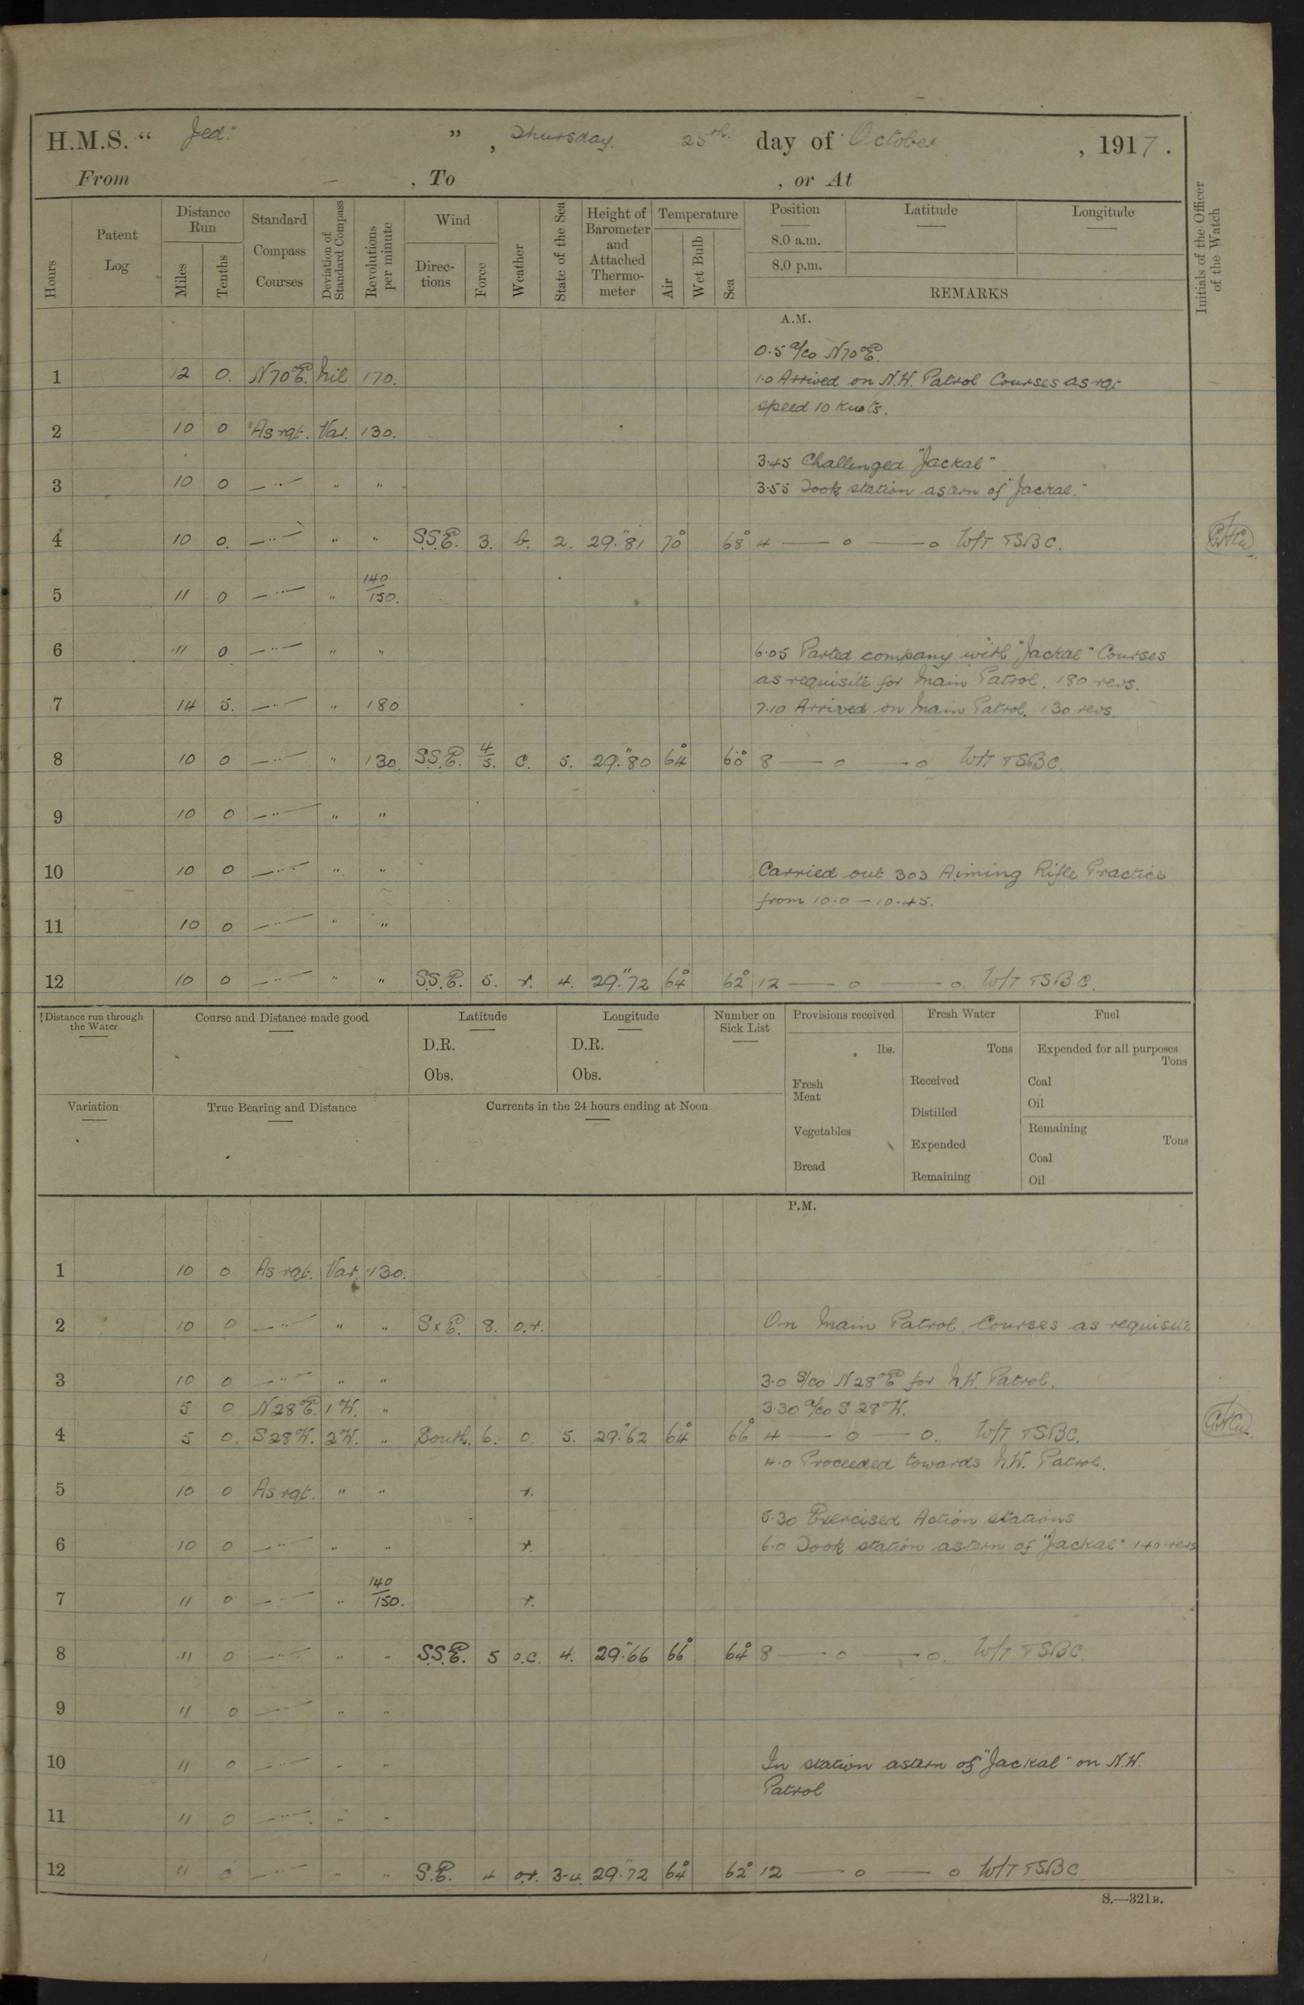 H.M.S. “ Jed. ” , Thursday. 25th. day of October , 1917.
From — , To , or At
Hours
Patent Log
Distance Run
Miles
Tenths
Standard Compass Courses
Deviation of Standard Compass
Revolutions per minute
Wind
Directions
Force
Weather
State of the Sea
Height of Barometer and Attached Thermometer
Temperature
Air
Wet Bulb
Sea
Position
8.0 a.m.
8.0 p.m.
Latitude
Longitude
REMARKS
Initials of the Officer of the Watch
A.M.
0.5 a/co N70E.
1 12 0. N70E. Nil 170. 1.0 Arrived on N.W. Patrol Courses as rqt
speed 10 knots.
2 10 0 As rqt. Var. 130.
3.45 Challenged "Jackal"
3 10 0 — " — " " 3.55 Took station astern of "Jackal."
4 10 0. — " — " " S.S.E. 3. b. 2. 29."81 70° 68° 4 — o — o W/T TSBC.
5 11 0 — " — " 140/150.
6 " 0 — " — " " 6.05 Parted company with "Jackal" Courses
as requisite for Main Patrol. 180 revs.
7 14 5. — " — " 180 7.10 Arrived on Main Patrol. 130 revs
8 10 0 — " — " 130. S.S.E. 4/5. c. 5. 29."80 64° 60° 8 — o — o W/T TSBC.
9 10 0 — " — " "
10 10 0 — " — " " Carried out 303 Aiming Rifle Practice
from 10.0 — 10.45.
11 10 0 — " — " "
12 10 0 — " — " " S.S.E. 5. r. 4. 29."72 64° 62° 12 — o — o. W/T TSBC.
Distance run through the Water
Course and Distance made good
Latitude
D.R.
Obs.
Longitude
D.R.
Obs.
Number on Sick List
Provisions received
lbs.
Fresh Meat
Vegetables
Bread
Fresh Water
Tons
Received
Distilled
Expended
Remaining
Fuel
Expended for all purposes
Tons
Coal
Oil
Remaining
Tons
Coal
Oil
Variation
True Bearing and Distance
Currents in the 24 hours ending at Noon
P.M.
1 10 0 As rqt. Var. 130.
2 10 0 — " — " " S x E. 8. o.r. On Main Patrol. Courses as requisite
3 10 0 — " — " " 3.0 S/co N28E for N.W. Patrol.
5 0 N28E. 1W. " 3.30 a/co S28W.
4 5 0. S28W. 2W. " South. 6. o. 5. 29."62 64° 66° 4 — o — o. W/T TSBC.
4.0 Proceeded towards N.W. Patrol.
5 10 0 As rqt. " " r.
5.30 Exercised Action stations
6 10 0 — " — " " r. 6.0 Took station astern of "Jackal" 140 revs
7 11 0 — " — " 140/150. r.
8 11 0 — " — " " S.S.E. 5 o.c. 4. 29."66 66° 64° 8 — o — o. W/T TSBC.
9 11 0 — " — " "
10 11 0 — " — " " In station astern of "Jackal" on N.W.
Patrol
11 11 0 — " — " "
12 11 0 — " — " " S.E. 4 o.r. 3-4. 29."72 64° 62° 12 — o — o W/T TSBC
S.—321B.